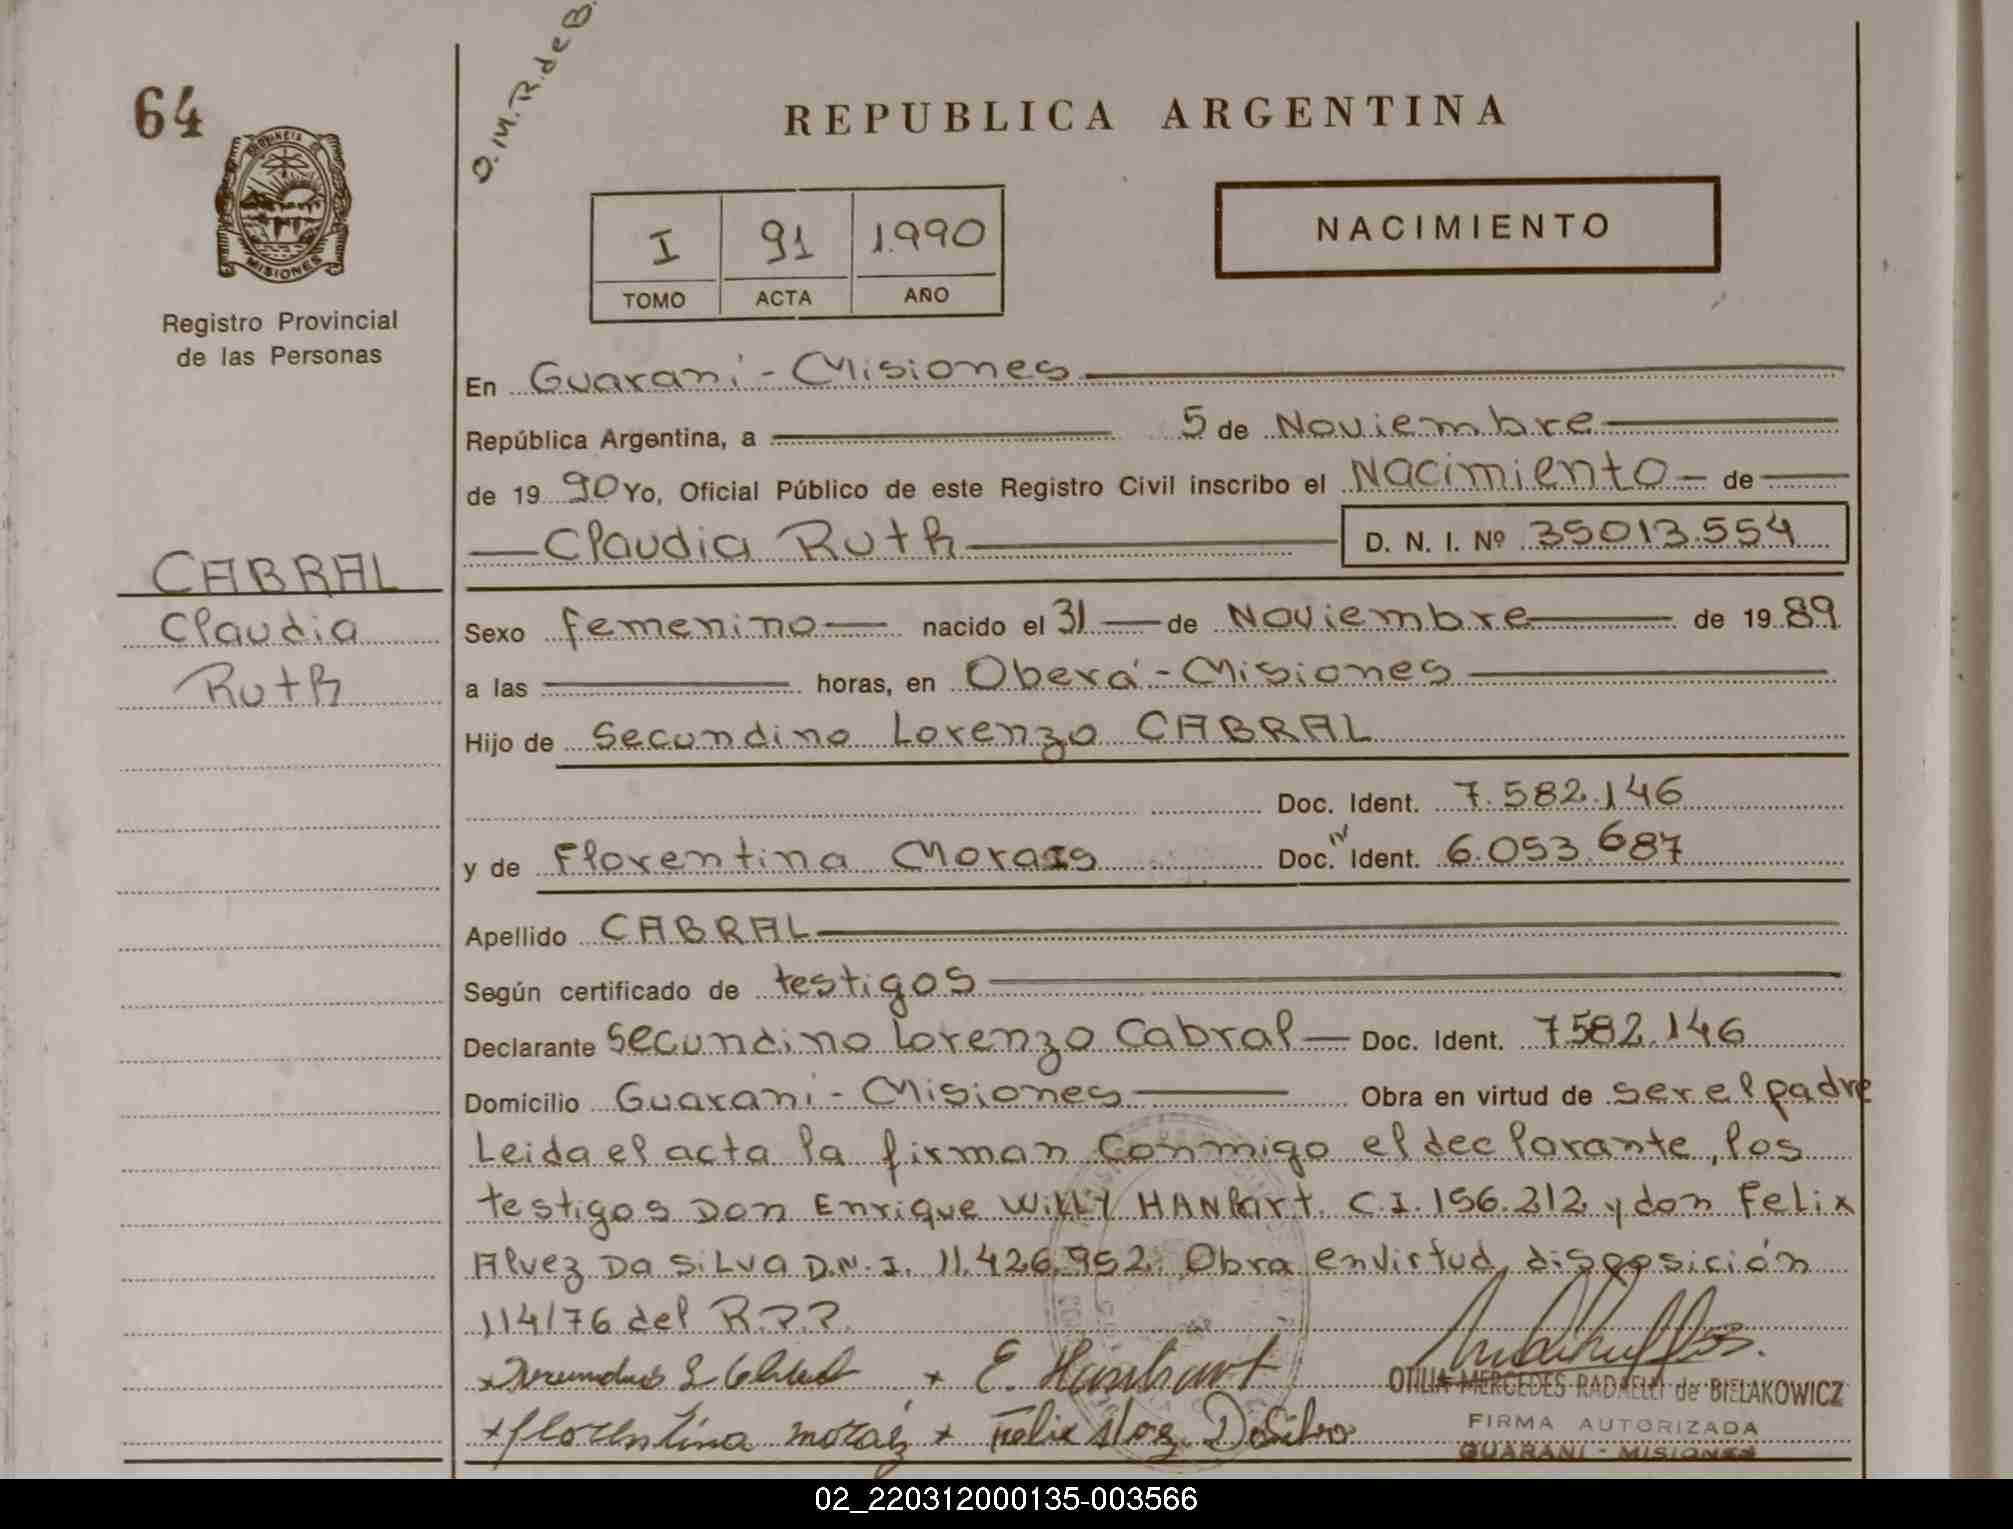 64
O.M.R.de B.
REPUBLICA ARGENTINA
PROVINCIA DE
MISIONES
Registro Provincial
de las Personas
I 91 1.990
TOMO ACTA AÑO
NACIMIENTO
En Guaraní - Misiones
República Argentina, a 5 de Noviembre
de 19 90 Yo, Oficial Público de este Registro Civil inscribo el Nacimiento de
Claudia Ruth D. N. I. Nº 35013.554
CABRAL
Claudia
Ruth
Sexo femenino nacido el 31 de Noviembre de 19 89
a las horas, en Oberá - Misiones
Hijo de Secundino Lorenzo CABRAL
Doc. Ident. 7.582.146
y de Florentina Morais Doc. Ident. 6.053.687
Apellido CABRAL
Según certificado de testigos
Declarante Secundino Lorenzo Cabral Doc. Ident. 7582.146
Domicilio Guaraní - Misiones Obra en virtud de ser el padre
Leida el acta la firman conmigo el declarante, los
testigos Don Enrique WILLY HANhart. C.I. 156.212 y don Felix
Alvez Da SiLVa D.N.I. 11.426.952. Obra envirtud disposición
114/76 del R.P.P.
x x E. Hanhart
OTILIA MERCEDES RADAELLI de BIELAKOWICZ
x florentina moraiz x Felix Alvez DaSilva
FIRMA AUTORIZADA
GUARANI - MISIONES
02_220312000135-003566